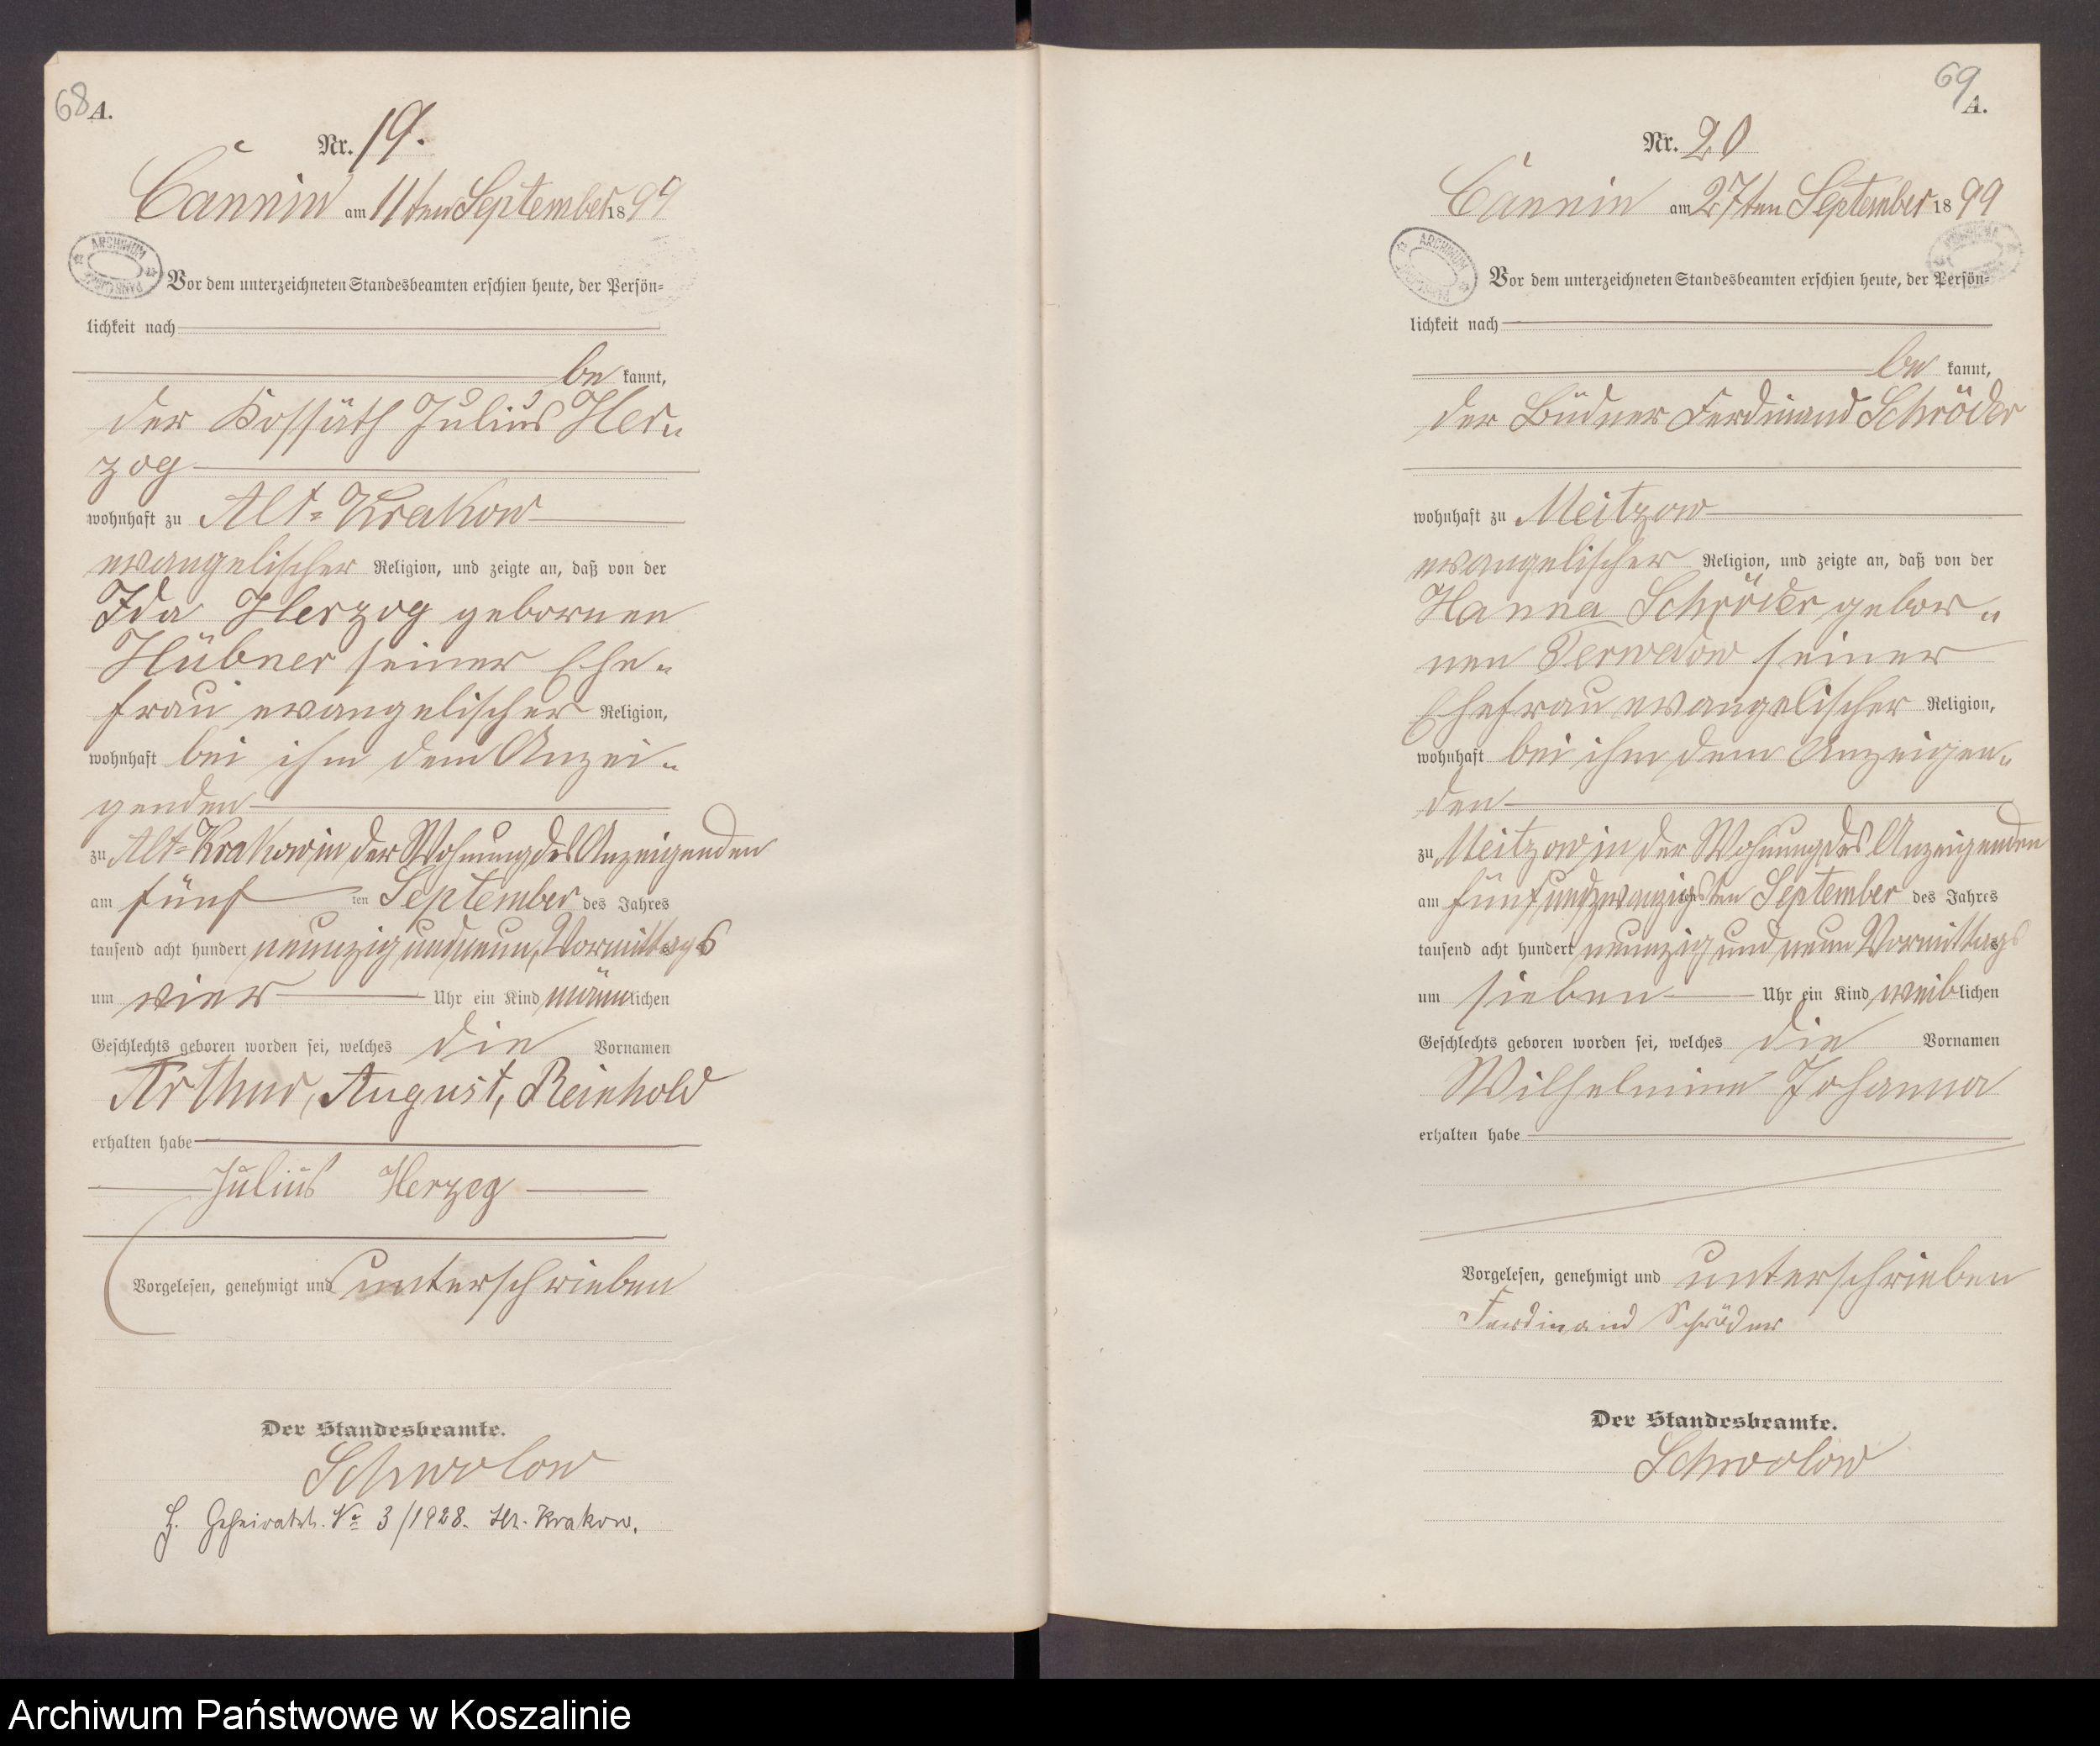 68 A.
Nr. 19.
Cannin am 11ten September 1899
ARCHIWUM
Vor dem unterzeichneten Standesbeamten erschien heute, der Persön=
lichkeit nach
be kannt,
der Kossäth Julius Her„
zog
wohnhaft zu Alt=Krakow
evangelischer Religion, und zeigte an, daß von der
Ida Herzog gebornen
Hübner seiner Ehe„
frau evangelischer Religion,
wohnhaft bei ihm dem Anzei„
genden
zu Alt=Krakow in der Wohnung des Anzeigenden
am fünf ten September des Jahres
tausend acht hundert neunzig und neun, Vormittags
um vier Uhr ein Kind männlichen
Geschlechts geboren worden sei, welches die Vornamen
Arthur, August, Reinhold
erhalten habe
Julius Herzog
Vorgelesen, genehmigt und unterschrieben
Der Standesbeamte.
Schwolow
H. Geheiratet. No 3/1928. Krakow.
69 A.
Nr. 20
Cannin am 27ten September 1899
ARCHIWUM
Vor dem unterzeichneten Standesbeamten erschien heute, der Persön=
lichkeit nach
be kannt,
der Büdner Ferdinand Schröder
wohnhaft zu Meitzow
evangelischer Religion, und zeigte an, daß von der
Hanna Schröder gebor„
nen Terwedow seiner
Ehefrau evangelischer Religion,
wohnhaft bei ihm dem Anzeigen„
den
zu Meitzow in der Wohnung des Anzeigenden
am fünfundzwanzigsten September des Jahres
tausend acht hundert neunzig und neun Vormittags
um sieben Uhr ein Kind weiblichen
Geschlechts geboren worden sei, welches die Vornamen
Wilhelmine Johanna
erhalten habe
Vorgelesen, genehmigt und unterschrieben
Ferdinand Schröder
Der Standesbeamte.
Schwolow
Archiwum Państwowe w Koszalinie